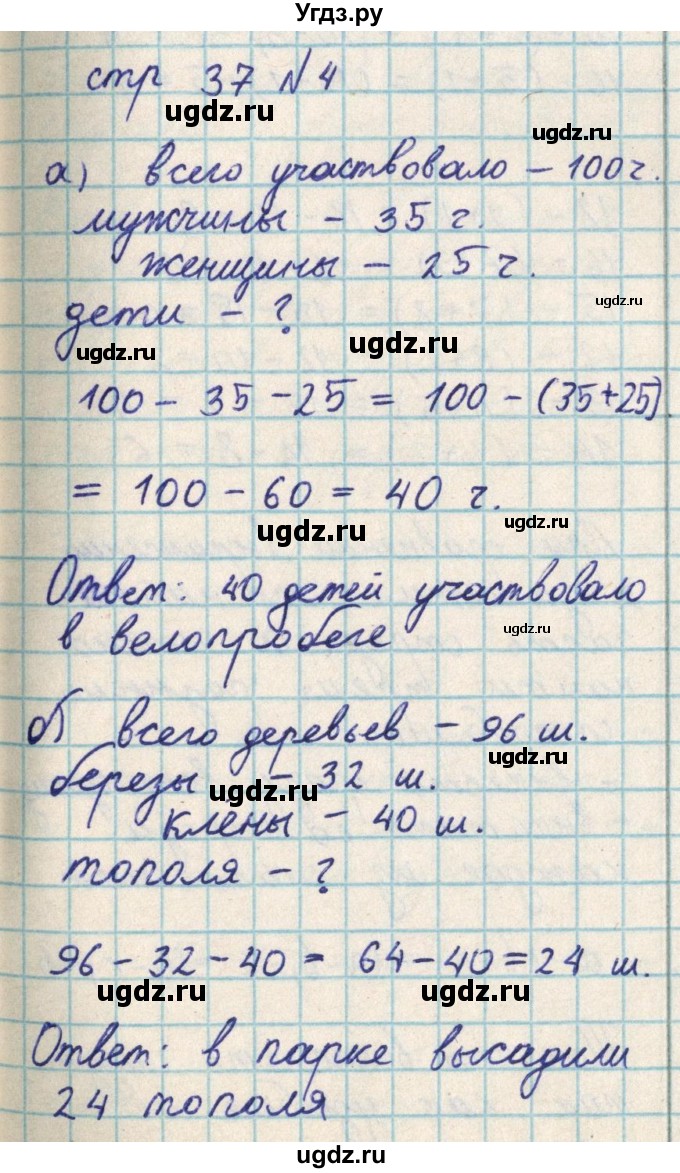 Угдз.ру
стр 37 № 4
ugdz.ru
ugdz.ru
а) всего участвовало – 100 ч.
мужчины – 35 ч.
женщины – 25 ч.
ugdz.ru
дети – ?
ugdz.ru
ugdz.ru
100 – 35 – 25 = 100 – (35+25)
= 100 – 60 = 40 ч.
ugdz.ru
ugdz.ru
Ответ: 40 детей участвовало
ugdz.ru
в велопробеге
б) всего деревьев – 96 ш.
ugdz.ru
березы – 32 ш.
ugdz.ru
клены – 40 ш.
тополя – ?
96 – 32 – 40 = 64 – 40 = 24 ш.
ugdz.ru
ugdz.ru
Ответ: в парке высадили
24 тополя
ugdz.ru